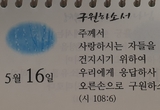 구원하소서
주께서
사랑하시는 자들을
건지시기 위하여
우리에게 응답하사
오른손으로 구원하
(시 108:6)
5월 16일